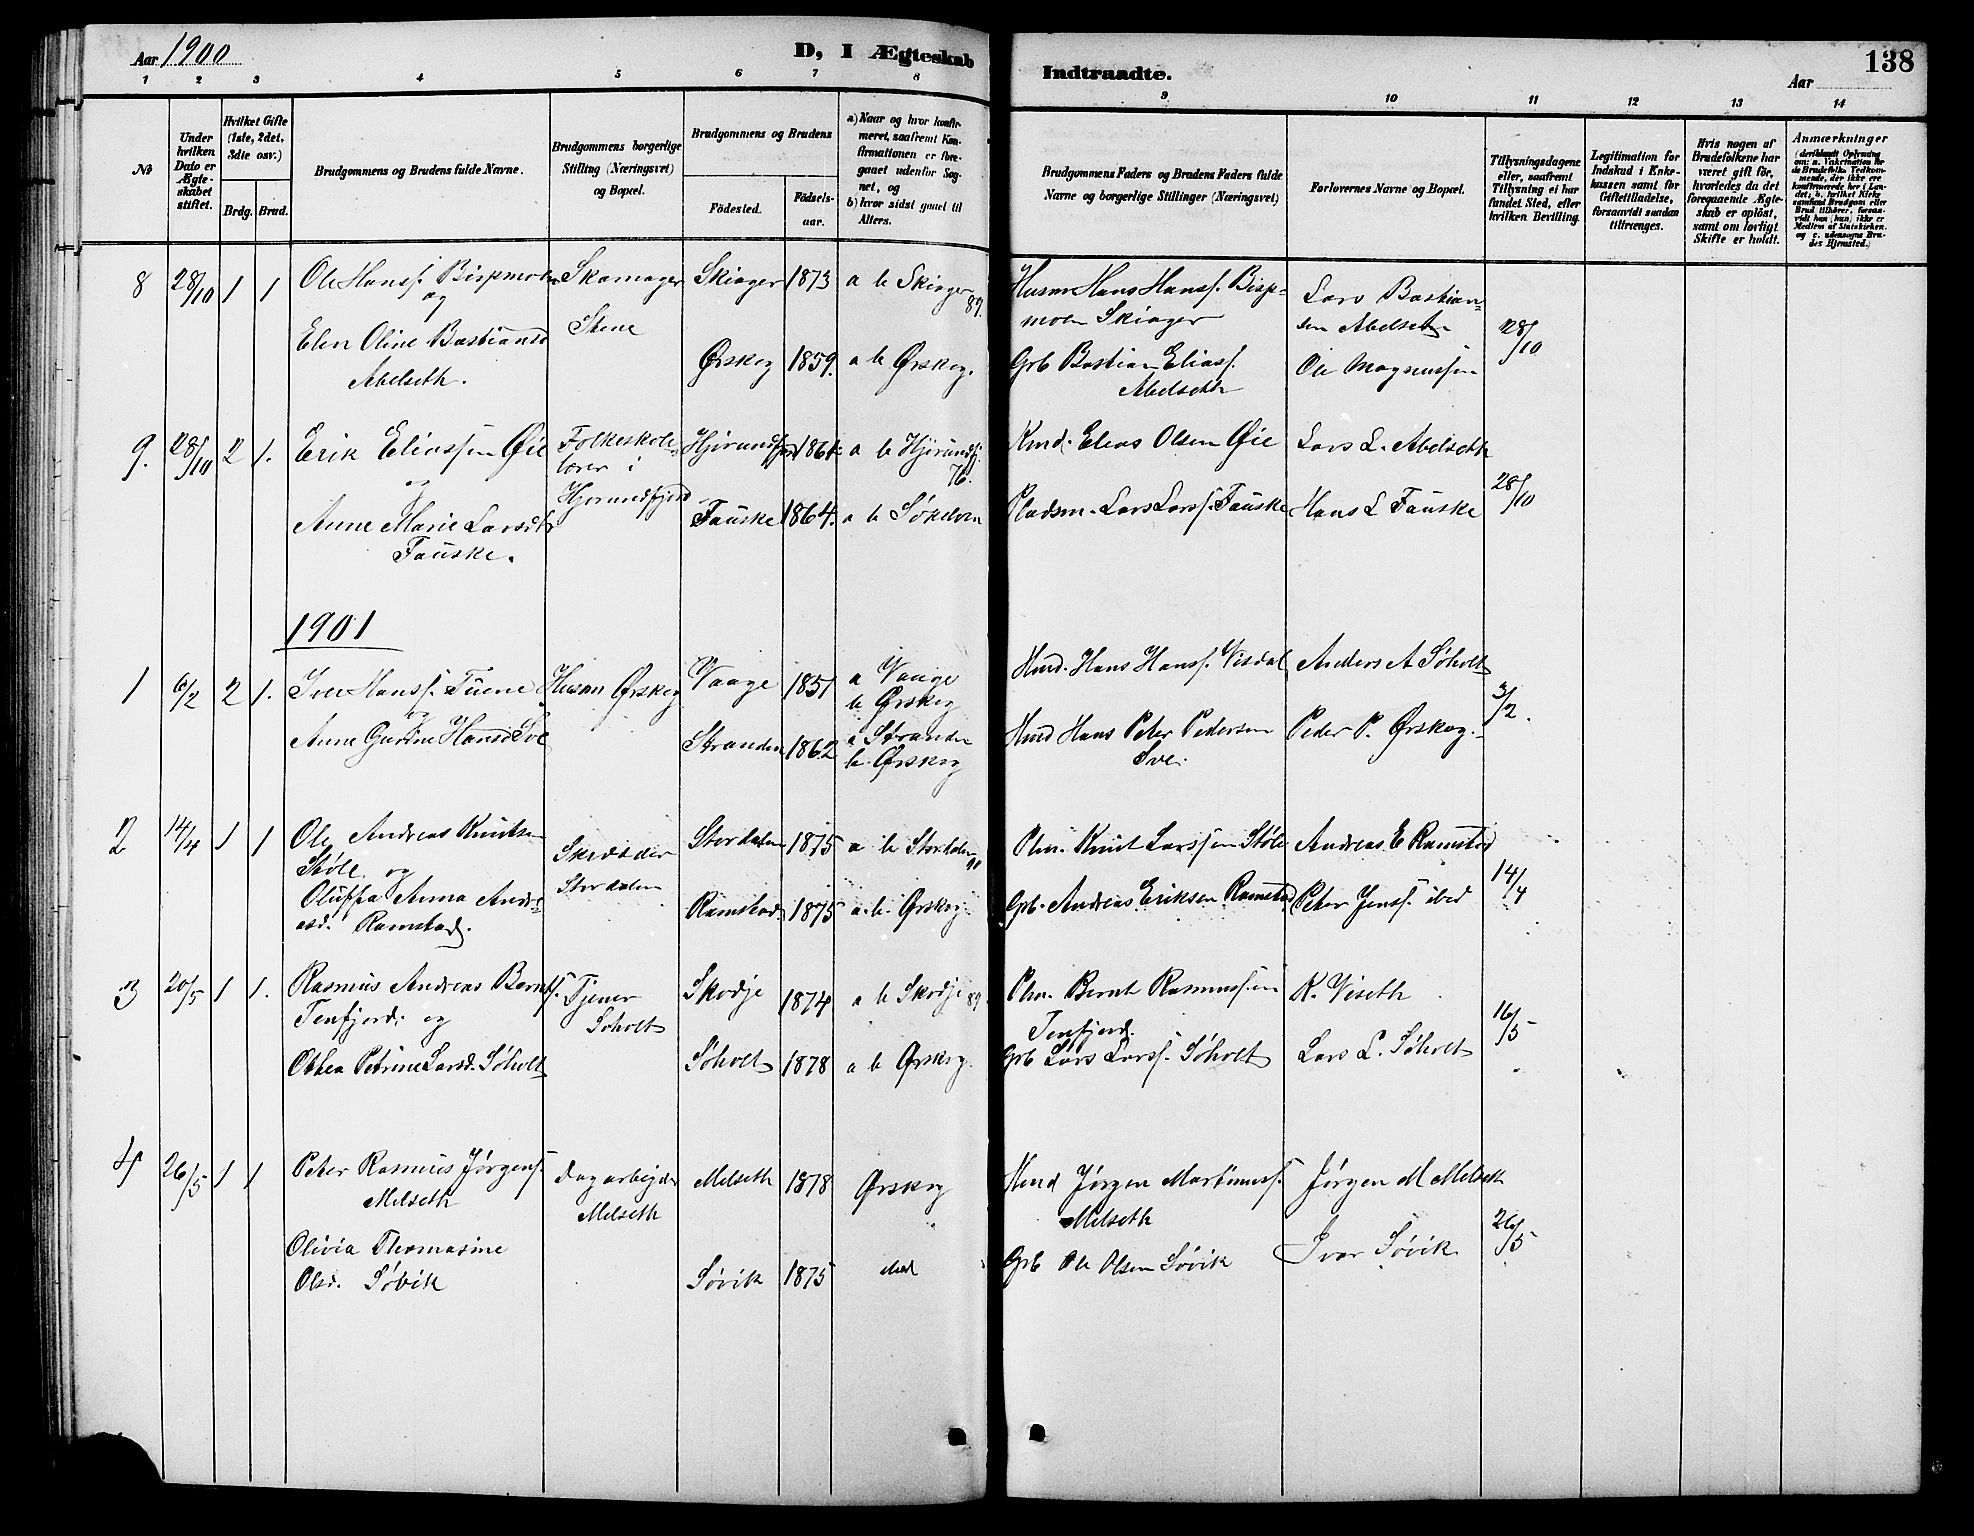 Aar 1900
D, I Ægteskab
Indtraadte.
Aar
138
1 2 3 4 5 6 7 8 9 10 11 12 13 14
№
Under hvilken Dato er Ægteskabet stiftet.
Hvilket Gifte (1ste, 2det, 3die osv.)
Brdg. Brud.
Brudgommens og Brudens fulde Navne.
Brudgommens borgerlige Stilling (Næringsvei) og Bopæl.
Brudgommens og Brudens
Födested.
Födsels-aar.
a) Naar og hvor konfir-
meret, saafremt Kon-
firmationen er fore-
gaaet udenfor Sog-
net, og
b) hvor sidst gaaet til
Alters.
Brudgommens Faders og Brudens Faders fulde
Navne og borgerlige Stillinger (Næringsvei)
Forlovernes Navne og Bopæl.
Tillysningsdagene
eller, saafremt
Tillysning ei har
fundet Sted, efter
hvilken Bevilling.
Legitimation for
Indskud i Enke-
kassen samt for
Giftetilladelse,
forsaavidt saadan
tiltrænges.
Hvis nogen af
Brudefolkene har
været gift för,
hvorledes da det
foregaaende Ægte-
skab er oplöst,
samt om lovligt
Skifte er holdt.
Anmærkninger
8 28/10 1 1 Ole Hanss. Bispmoen Skomager Skiager 1873 a b Skiager 89. Husm Hans Hanss. Bisp- Lars Bastian-
og Stene moen Skiager sen Abelseth 28/10
Elen Oline Bastiansd Ørskog 1859. a b Ørskog. Grb Bastian Eliass. Ole Magnussen
Abelseth. Abelseth
9. 28/10 2 1. Erik Eliassen Øie Folkeskole- Hjörundfjord 1864 a b Hjörundfj. 76. Kmd. Elias Olsen Øie Lars L. Abelseth
og lærer i 28/10
Anne Marie Larsdtr Hjörundfjord Fauske 1864. a b Søkelven Pladsm. Lars Larss. Fauske Hans L Fauske
Fauske.
1901
1 6/2 2 1. Iver Hanss. Tuene Husm Ørskog Vaage 1851 a Vaage Hmd. Hans Hanss. Visdal Anders A Søholt
og b Ørskog 3/2.
Anne Gurine Hansd Sve Stranden 1862 a Stranden Hmd Hans Peter Pedersen Peder P. Ørskog.
b. Ørskog Sve.
2 14/4 1 1 Ole Andreas Knutsen Skrædder Stordalen 1875 a b Stordalen 90 Plm. Knut Larssen Støle Andreas E Ramstad
Støle og Stordalen 14/4
Oluffa Anna Andre- Ramstad 1875 a. b. Ørskog Grb. Andreas Eriksen Ramstad Peter Jenss. ibid
asd. Ramstad.
3 20/5 1 1. Rasmus Andreas Bernts. Tjener Skodje 1874 a b Skodje 89. Plm. Bernt Rasmussen K. Viseth
Tenfjord. og Soholt Tenfjord. 16/5
Othea Petrine Larsd. Søholt Søholt 1878 a b Ørskog. Grb Lars Larss. Søholt Lars L. Søholt
4 26/5 1 1 Peter Rasmus Jørgens. Dagarbejder Melseth 1878 Ørskog Hmd Jørgen Martinuss. Jørgen M Melseth
Melseth Melseth Melseth 26/5
Olivia Thomasine Ivar Søvik
Olsd. Søvik Søvik 1875 ibid Grb Ole Olsen Søvik